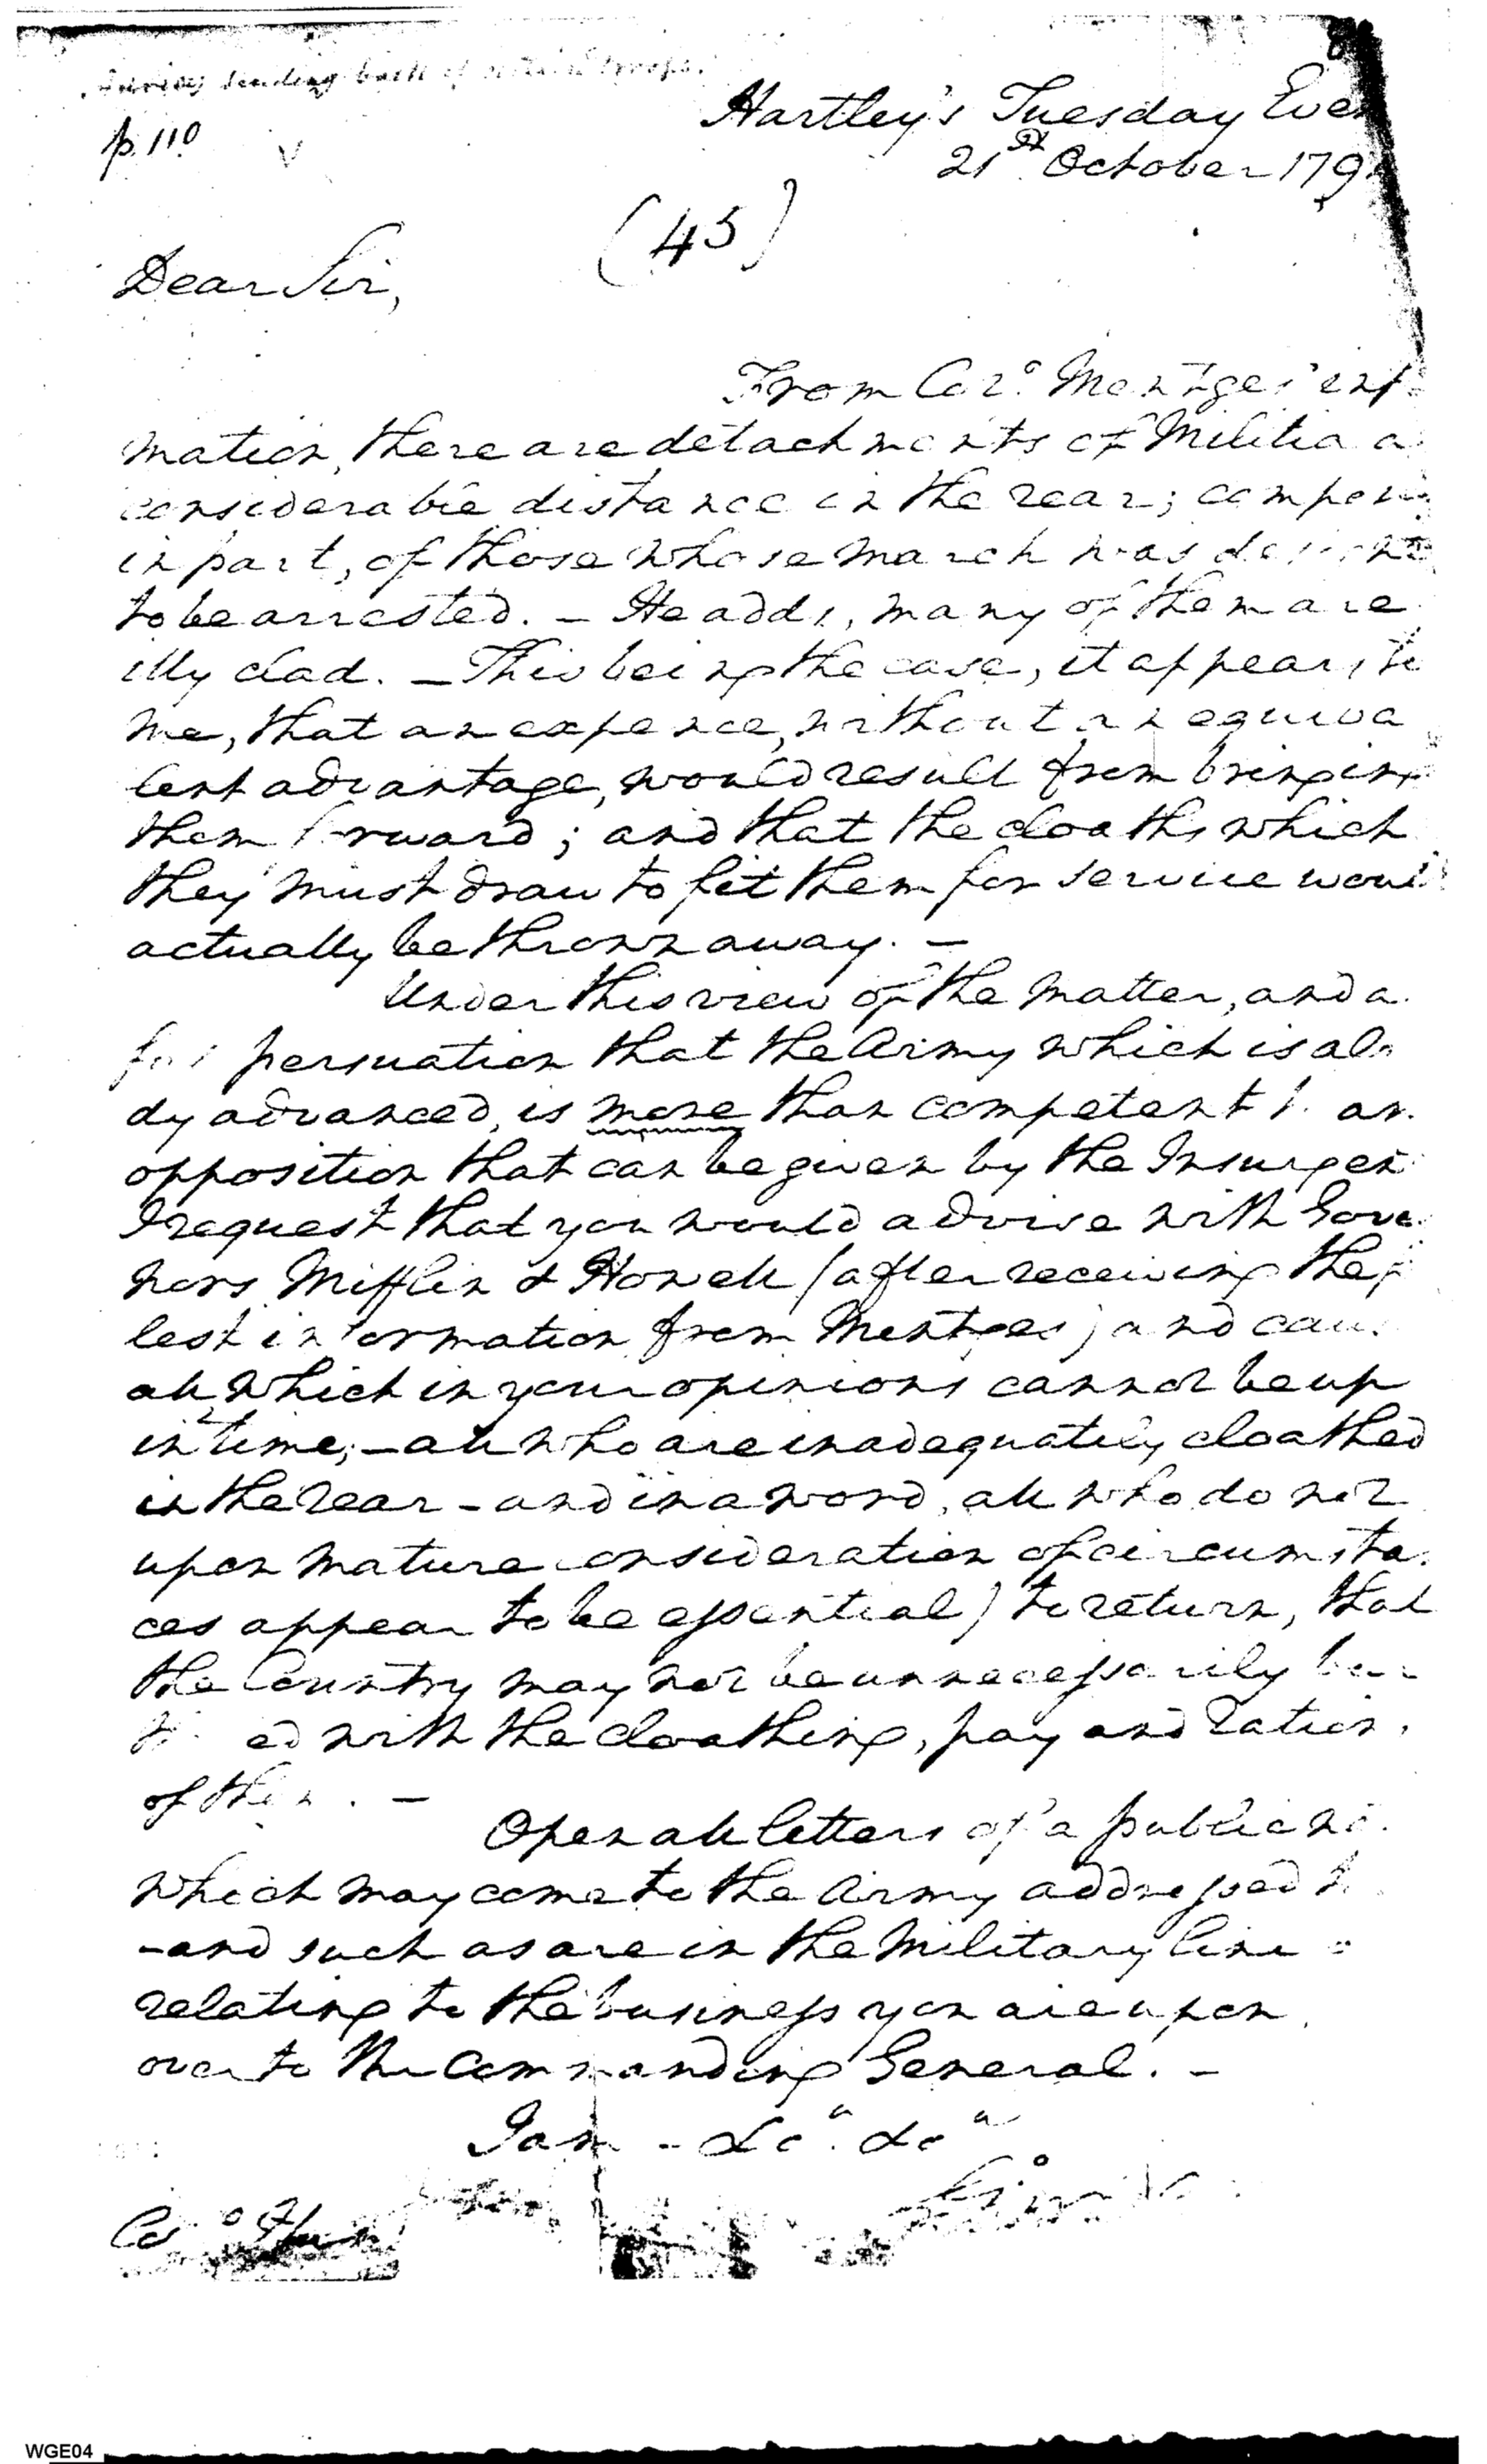 sending back of troops.
p. 110
Hartley's Tuesday Eve
21st October 179
(45)
Dear Sir,
From Colo. Mentges' inf
mation, there are detachments of Militia a
considerable distance in the rear; compos
in part, of those whose march was
to be arrested. – He adds, many of them are
illy clad. – This being the case, it appears to
me, that an expence, without an equiva
lent advantage, would result from bringing
them forward; and that the cloaths which
they must draw to fit them for service woul
actually be thrown away. –
Under this view of the matter, and a
persuation that the Army which is al
dy advanced, is more than competent t an
opposition that can be given by the Insurgen
I request that you would advise with Gove
nors Mifflin & Howell (after receiving the f
lest information from Mentges) and cau
all which in your opinions cannot be up
in time; – all who are inadequately cloathed
in the rear – and in a word, all who do not
upon mature consideration of circumsta
ces appear to be essential) to return, that
the Country may not be unnecessarily bur
ed with the cloathing, pay and ration
of them. –
Open all letters of a public n
which may come to the Army addressed t
– and such as are in the Military line
relating to the business you are upon
over to the Commanding General. –
I am – &ca. &ca
WGE04